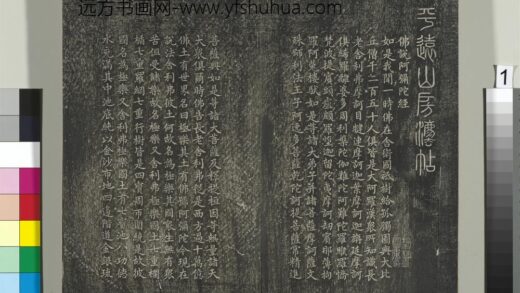 远方书画网-www.yfshuhua.com
平遠山房法帖
佛說阿彌陀經
如是我聞一時佛在舍衛國祇樹給孤獨園與大比
丘僧千二百五十人俱皆是大阿羅漢衆所知識長
老舍利弗摩訶目犍連摩訶迦葉摩訶迦旃延摩訶
俱絺羅離婆多周利槃陀伽難陀阿難陀羅睺羅憍
梵波提賓頭盧頗羅墮迦留陀夷摩訶劫賓那薄拘
羅阿㝹樓馱如是等諸大弟子并諸菩薩摩訶薩文
殊師利法王子阿逸多菩薩乾陀訶提菩薩常精進
菩薩與如是等諸大菩薩及釋提桓因等無量諸天
大衆俱爾時佛告長老舍利弗從是西方過十萬億
佛土有世界名曰極樂其土有佛號阿彌陀今現在
說法舍利弗彼土何故名為極樂其國衆生無有衆
苦但受諸樂故名極樂又舍利弗極樂國土七重欄
楯七重羅網七重行樹皆是四寶周帀圍繞是故彼
國名為極樂又舍利弗極樂國土有七寶池八功德
水充滿其中池底純以金沙布地四邊階道金銀琉
1